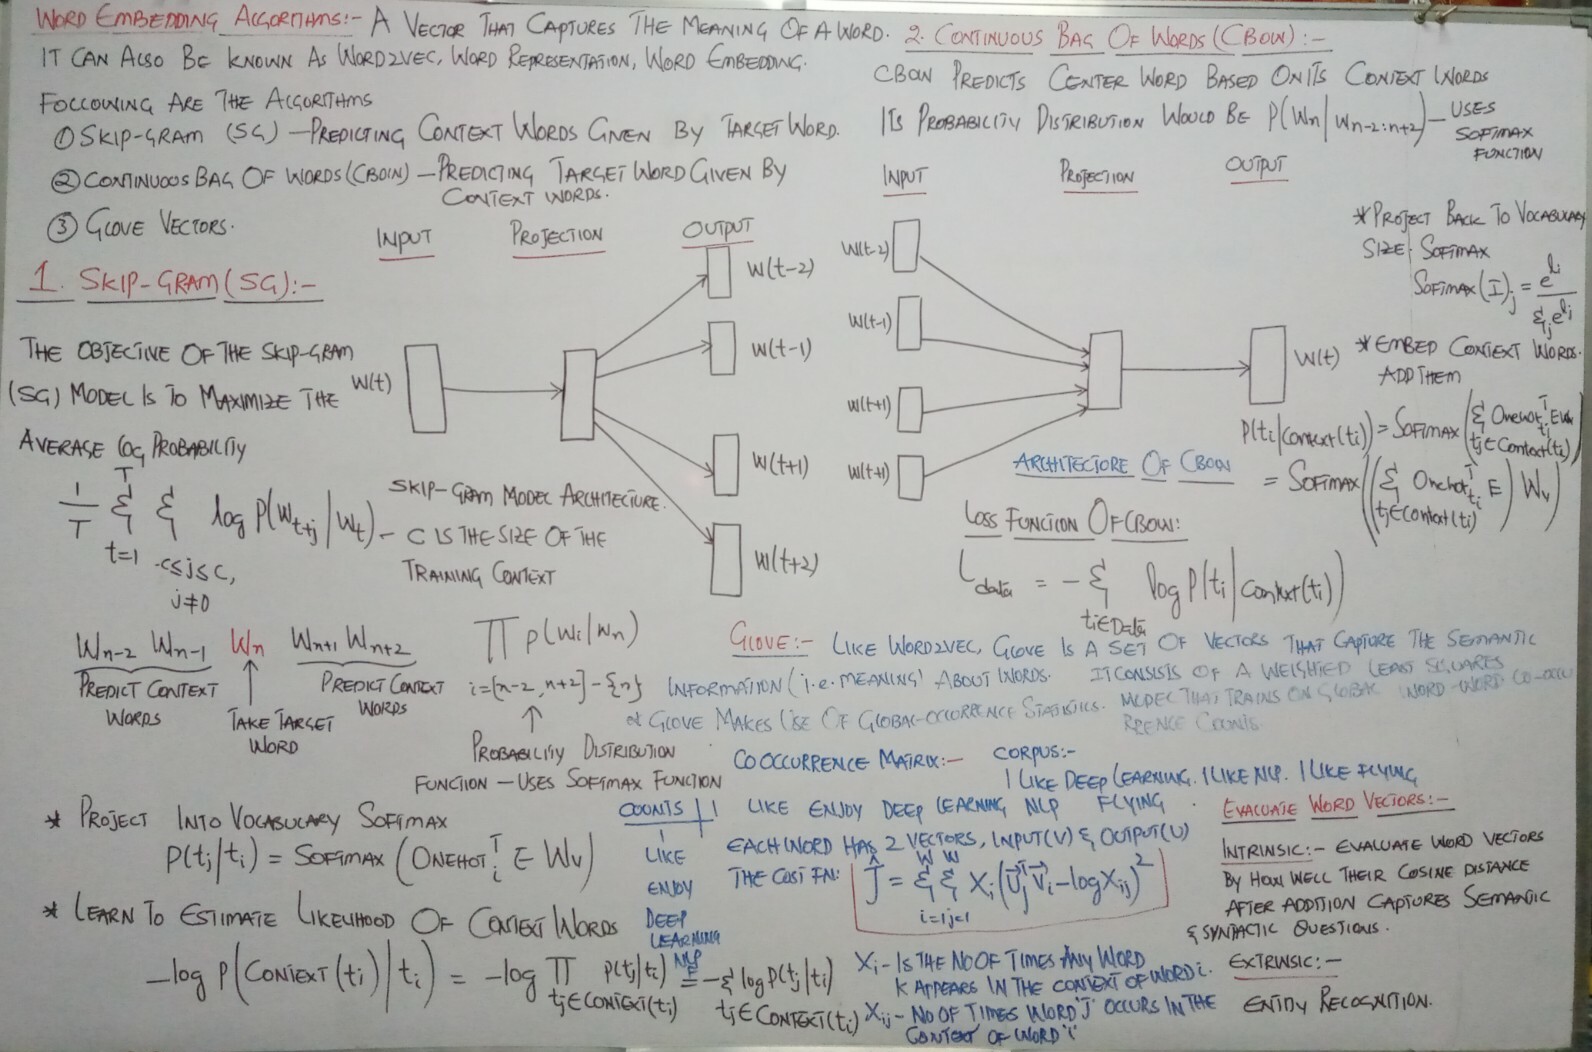 WORD EMBEDDING ALGORITHMS:- A VECTOR THAT CAPTURES THE MEANING OF A WORD.
IT CAN ALSO BE KNOWN AS WORD2VEC, WORD REPRESENTATION, WORD EMBEDDING.
FOLLOWING ARE THE ALGORITHMS
① SKIP-GRAM (SG) – PREDICTING CONTEXT WORDS GIVEN BY TARGET WORD.
② CONTINUOUS BAG OF WORDS (CBOW) – PREDICTING TARGET WORD GIVEN BY
CONTEXT WORDS.
③ GLOVE VECTORS.
1. SKIP-GRAM (SG):-
INPUT PROJECTION OUTPUT
THE OBJECTIVE OF THE SKIP-GRAM
(SG) MODEL IS TO MAXIMIZE THE
AVERAGE LOG PROBABILITY
1/T Σ_{t=1}^{T} Σ_{-c≤j≤c, j≠0} log P(W_{t+j} | W_t) – C IS THE SIZE OF THE
TRAINING CONTEXT
W(t)
W(t-2)
W(t-1)
W(t+1)
W(t+2)
SKIP-GRAM MODEL ARCHITECTURE.
W_{n-2} W_{n-1} W_n W_{n+1} W_{n+2}
PREDICT CONTEXT
WORDS
TAKE TARGET
WORD
PREDICT CONTEXT
WORDS
∏ P(W_i | W_n)
i=[n-2, n+2]-{n}
PROBABILITY DISTRIBUTION
FUNCTION – USES SOFTMAX FUNCTION
* PROJECT INTO VOCABULARY SOFTMAX
P(t_j | t_i) = SOFTMAX (ONEHOT_i^T E W_v)
* LEARN TO ESTIMATE LIKELIHOOD OF CONTEXT WORDS
-log P(CONTEXT(t_i) | t_i) = -log ∏_{t_j∈CONTEXT(t_i)} P(t_j | t_i) = -Σ_{t_j∈CONTEXT(t_i)} log P(t_j | t_i)
2. CONTINUOUS BAG OF WORDS (CBOW):-
CBOW PREDICTS CENTER WORD BASED ON ITS CONTEXT WORDS
ITS PROBABILITY DISTRIBUTION WOULD BE P(W_n | W_{n-2:n+2}) – USES
SOFTMAX
FUNCTION
INPUT PROJECTION OUTPUT
W(t-2)
W(t-1)
W(t+1)
W(t+1)
W(t)
ARCHITECTURE OF CBOW
* PROJECT BACK TO VOCABULARY
SIZE. SOFTMAX
SOFTMAX(I)_j = e^{l_i} / Σ_j e^{l_j}
* EMBED CONTEXT WORDS.
ADD THEM
P(t_i | Context(t_i)) = SOFTMAX(Σ_{t_j∈Context(t_i)} Onehot_{t_i}^T E
= SOFTMAX((Σ_{t_j∈Context(t_i)} Onehot_{t_i}^T E) W_v)
LOSS FUNCTION OF CBOW:
L_data = -Σ_{t_i∈Data} log P(t_i | Context(t_i))
GLOVE:- LIKE WORD2VEC, GLOVE IS A SET OF VECTORS THAT CAPTURE THE SEMANTIC
INFORMATION (i.e. MEANING) ABOUT WORDS. IT CONSISTS OF A WEIGHTED LEAST SQUARES
MODEL THAT TRAINS ON GLOBAL WORD-WORD CO-OCCU
RRENCE COUNTS.
* GLOVE MAKES USE OF GLOBAL-OCCURRENCE STATISTICS.
CO OCCURRENCE MATRIX:- CORPUS:-
I LIKE DEEP LEARNING. I LIKE NLP. I LIKE FLYING
COUNTS I LIKE ENJOY DEEP LEARNING NLP FLYING .
I
LIKE
ENJOY
DEEP
LEARNING
NLP
EACH WORD HAS 2 VECTORS, INPUT(V) & OUTPUT(U)
THE COST FN: Ĵ = Σ_{i=1}^{W} Σ_{j=1}^{W} X_i (U_j^T V_i - log X_ij)^2
X_i - IS THE NO OF TIMES ANY WORD
K APPEARS IN THE CONTEXT OF WORD i.
X_ij - NO OF TIMES WORD 'J' OCCURS IN THE
CONTEXT OF WORD 'i'
EVALUATE WORD VECTORS:-
INTRINSIC:- EVALUATE WORD VECTORS
BY HOW WELL THEIR COSINE DISTANCE
AFTER ADDITION CAPTURES SEMANTIC
& SYNTACTIC QUESTIONS.
EXTRINSIC:-
ENTITY RECOGNITION.